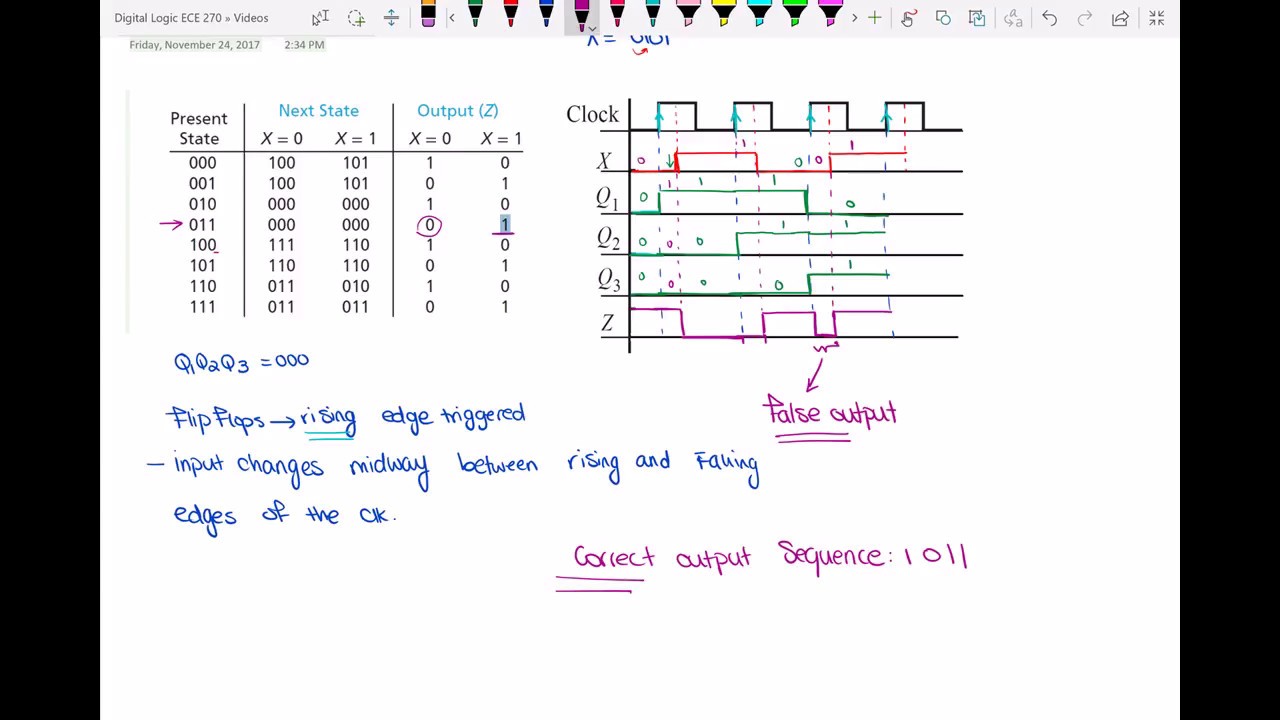 Digital Logic ECE 270 » Videos
Friday, November 24, 2017 2:34 PM
X = 0101
Present State Next State Output (Z)
X = 0 X = 1 X = 0 X = 1
000 100 101 1 0
001 100 101 0 1
010 000 000 1 0
→ 011 000 000 0 1
100 111 110 1 0
101 110 110 0 1
110 011 010 1 0
111 011 011 0 1
Clock
X 0 1 0 0 1
Q1 0 1 1 1 0
Q2 0 0 0 1 1
Q3 0 0 0 0 1
Z
Q1Q2Q3 = 000
False output
FlipFlops → rising edge triggered
– input changes midway between rising and Falling
edges of the Clk.
Correct output Sequence: 1 0 1 1